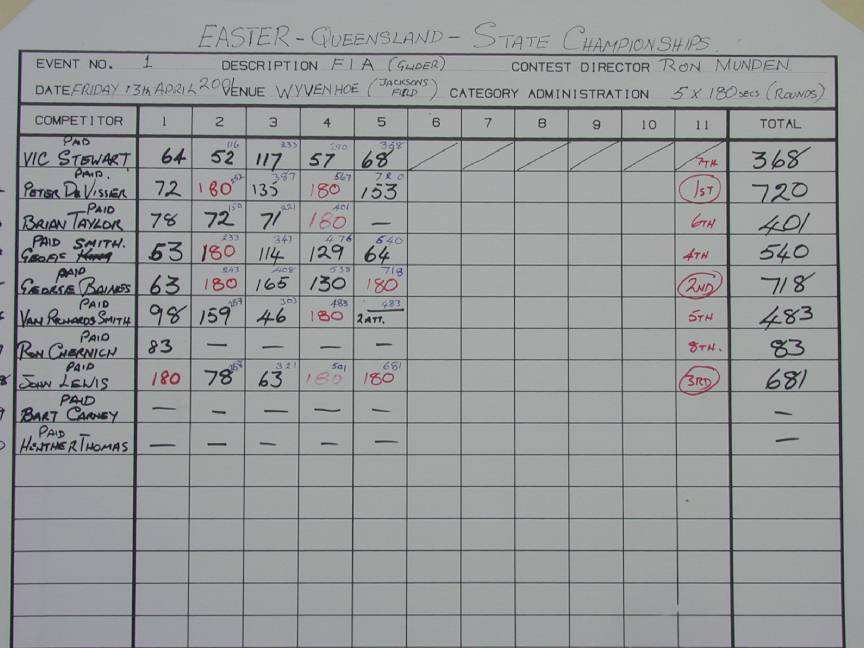 EASTER - QUEENSLAND - STATE CHAMPIONSHIPS.
EVENT NO. 1 DESCRIPTION F1A (GLIDER) CONTEST DIRECTOR RON MUNDEN.
DATE FRIDAY 13th APRIL 2001 VENUE WYVENHOE (JACKSONS FIELD) CATEGORY ADMINISTRATION 5 X 180 SECS (ROUNDS)
COMPETITOR 1 2 3 4 5 6 7 8 9 10 11 TOTAL
PAID VIC STEWART 64 52 116 117 233 57 290 68 358 7TH 368
PAID. PETER DE VISSER 72 180 252 135 387 180 567 153 720 1ST 720
PAID BRIAN TAYLOR 78 72 150 71 221 180 401 — 6TH 401
PAID SMITH. 53 180 233 114 347 129 476 64 540 4TH 540
PAID GEORGE BAINES 63 180 243 165 408 130 538 180 718 2ND 718
PAID VAN RICHARDS SMITH 98 159 257 46 303 180 483 2 ATT. 483 5TH 483
PAID RON CHERNICH 83 — — — — 8TH. 83
8 PAID JOHN LEWIS 180 78 258 63 321 180 501 180 681 3RD 681
PAID BART CARNEY — — — — — —
PAID THOMAS — — — — — —